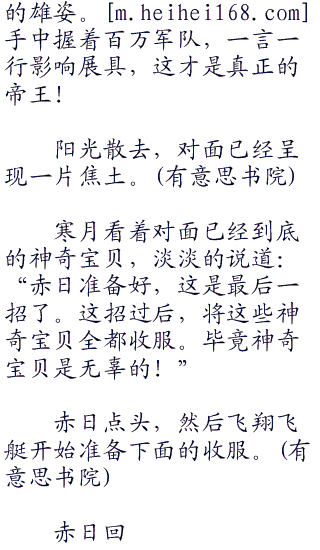 的雄姿。[m.heihei168.com]
手中握着百万军队，一言一
行影响展具，这才是真正的
帝王！
阳光散去，对面已经呈
现一片焦土。(有意思书院)
寒月看着对面已经到底
的神奇宝贝，淡淡的说道：
“赤日准备好，这是最后一
招了。这招过后，将这些神
奇宝贝全都收服。毕竟神奇
宝贝是无辜的！”
赤日点头，然后飞翔飞
艇开始准备下面的收服。(有
意思书院)
赤日回